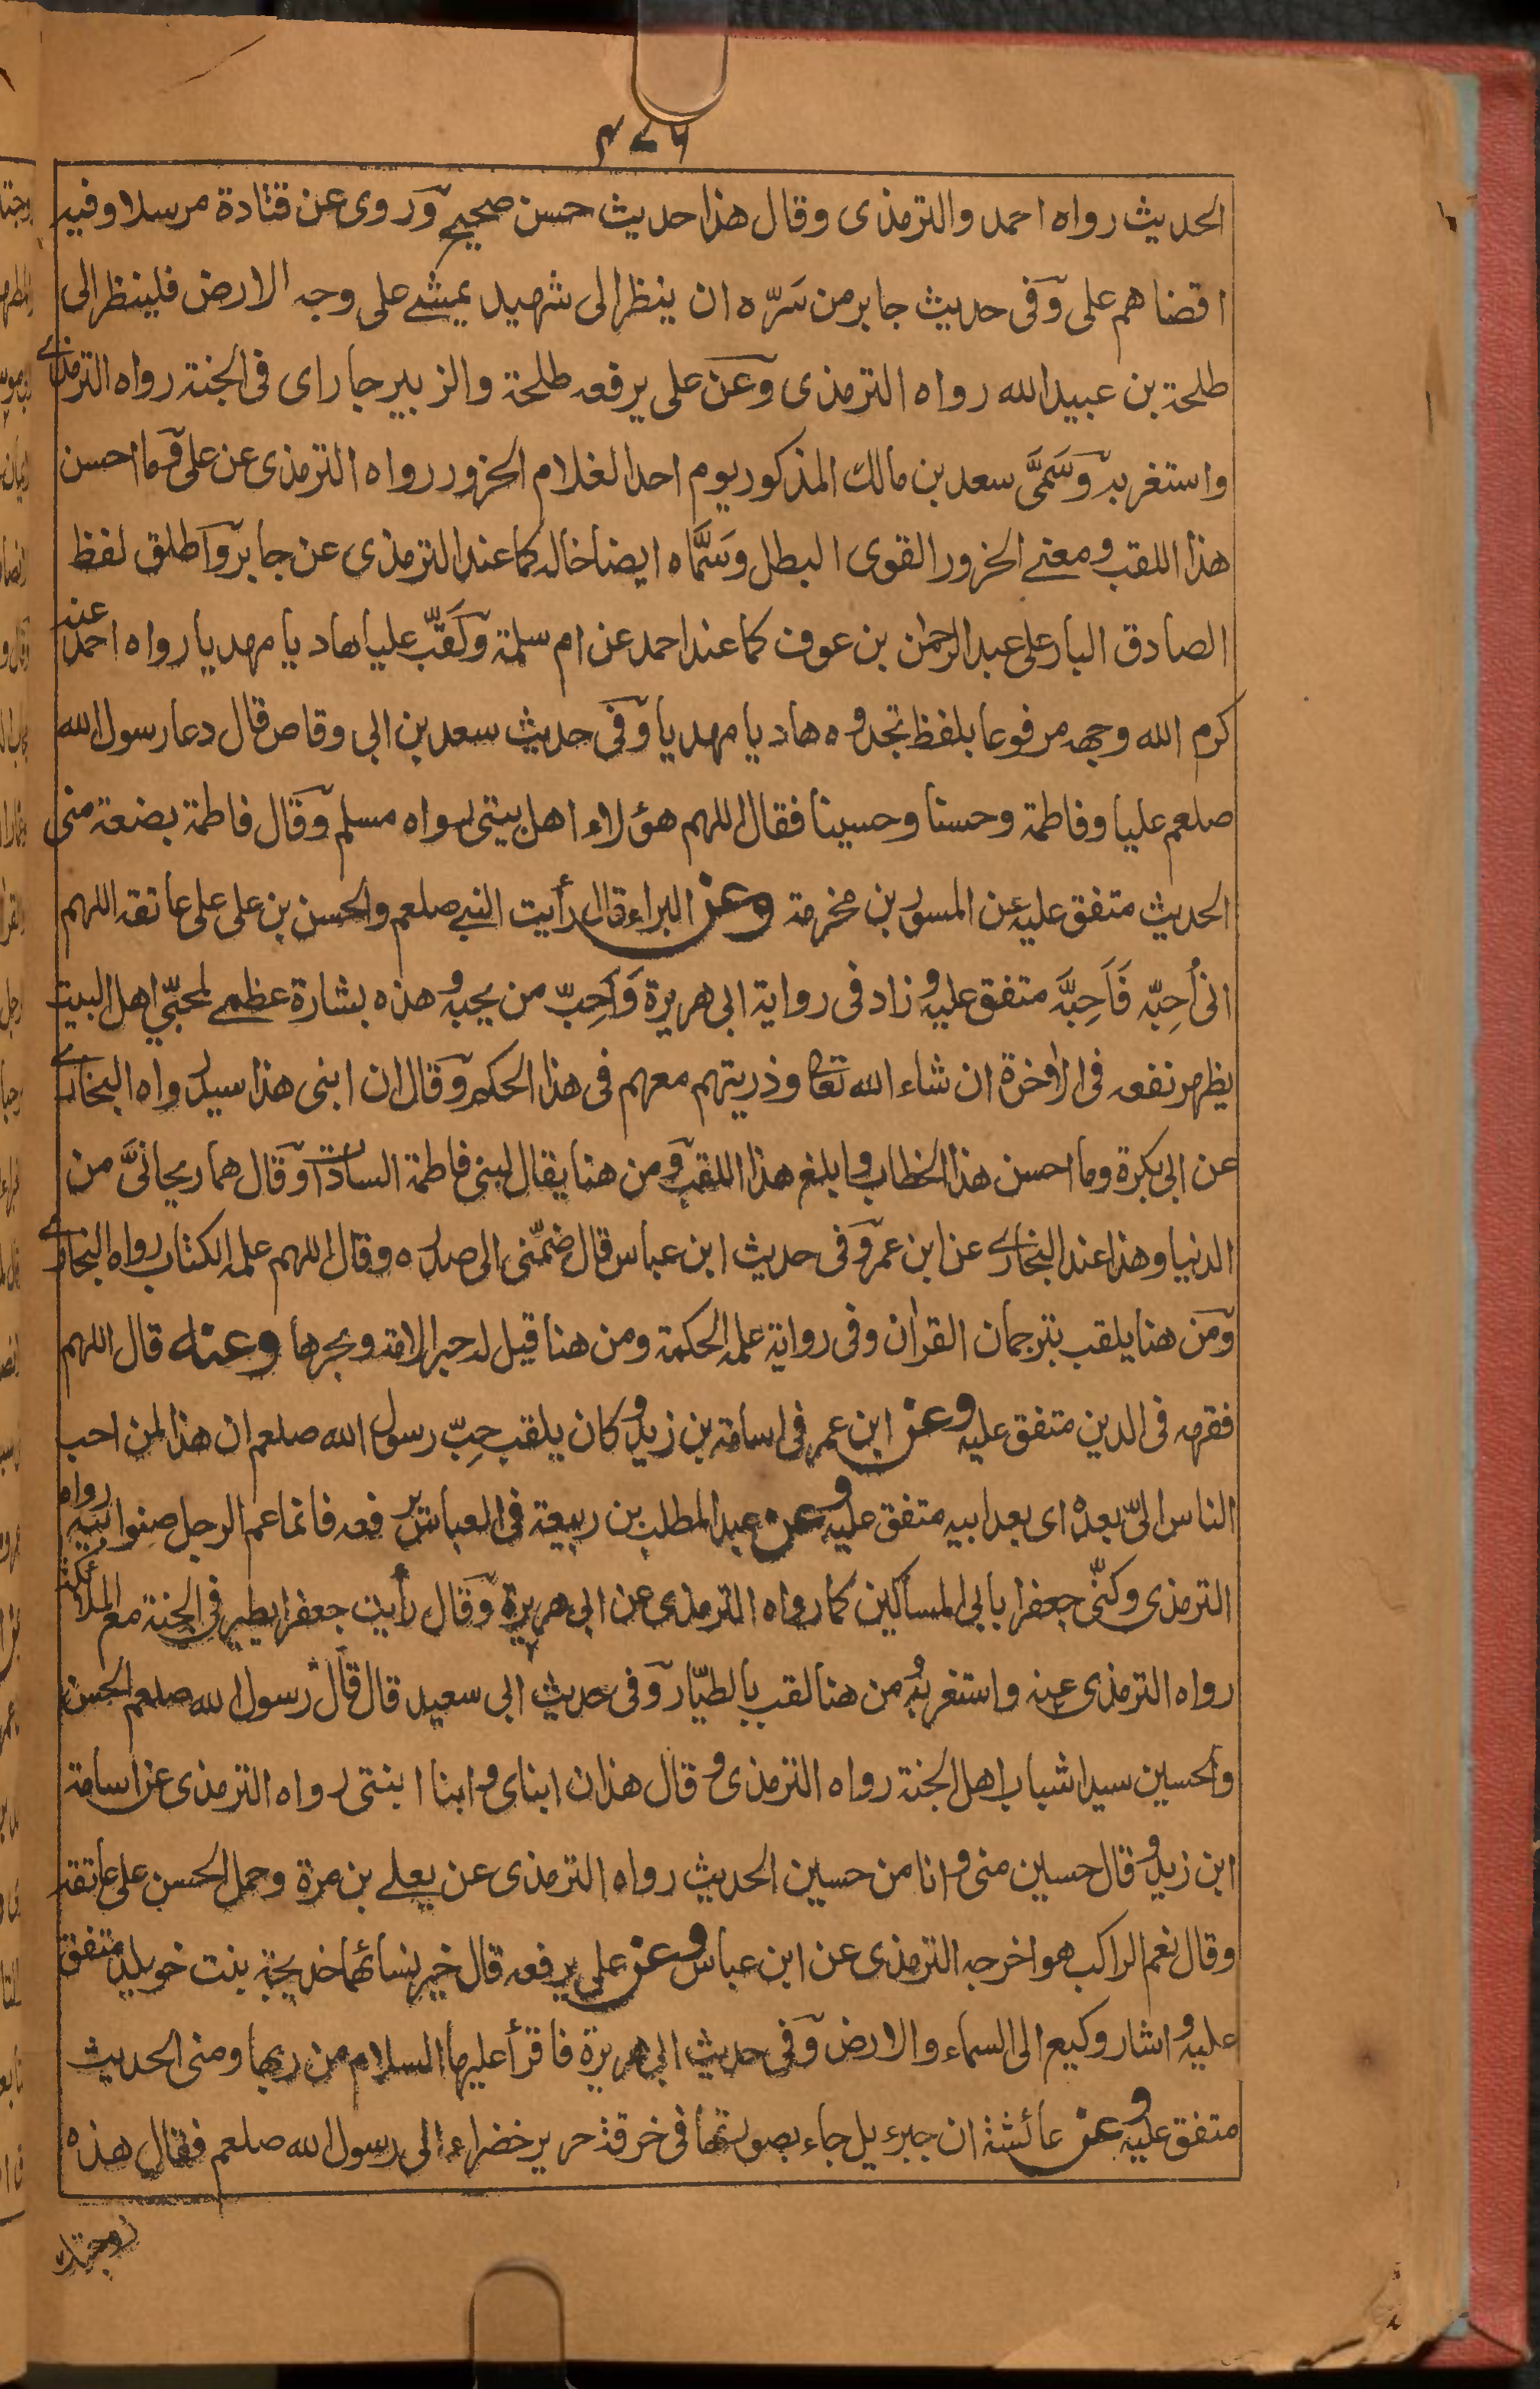 ٤٧٦
الحديث رواه احمد والترمذى وقال هذا حديث حسن صحيح وروى عن قتادة مرسلا وفيه
اقضاهم على وفى حديث جابر من سَرّه ان ينظر الى شهيد يمشے على وجه الارض فلينظر الى
طلحة بن عبيد الله رواه الترمذى وعن على يرفعه طلحة والزبير جاراى فى الجنة رواه الترمذے
واستغربه وسَمَّى سعد بن مالك المذكور يوم احد الغلام الحزور رواه الترمذى عن على وما احسن
هذا اللقب ومعنے الحزور القوى البطل وسَمَّاه ايضا خاله كما عند الترمذى عن جابر واطلق لفظ
الصادق البار على عبد الرحمٰن بن عوف كما عند احمد عن ام سلمة ولَقَّب عليا هاديا مهديا رواه احمد عنه
كرم الله وجهه مرفوعا بلفظ تجدوه هاديا مهديا وفى حديث سعد بن ابى وقاص قال دعا رسول الله
صلعم عليا وفاطمة وحسنا وحسينا فقال اللهم هؤلاء اهل بيتى رواه مسلم وقال فاطمة بضعة منى
الحديث متفق عليه عن المسور بن مخرمة وعن البراء قال رأيت النبے صلعم والحسن بن على على عاتقه اللهم
انى اُحِبّه فَاَحِبَّه متفق عليه وزاد فى رواية ابى هريرة وَاَحِبّ من يحبه وهذه بشارة عظمے لمحبّي اهل البيت
يظهر نفعه فى الاٰخرة ان شاء الله تعا وذريتهم معهم فى هذا الحكم وقال ان ابنى هذا سيد رواه البخارے
عن ابى بكرة وما احسن هذا الخطاب وابلغ هذا اللقب ومن هنا يقال لبنى فاطمة السادات وقال هما ريحانىَّ من
الدنيا وهذا عند البخارے عن ابن عمر وفى حديث ابن عباس قال ضمّنى الى صدره وقال اللهم علمه الكتاب رواه البخارے
ومن هنا يلقب بترجمان القراٰن وفى رواية علمه الحكمة ومن هنا قيل له حبر الامة وبحرها وعنه قال اللهم
فقهه فى الدين متفق عليه وعن ابن عمر فى اسامة بن زيد وكان يلقب حِبّ رسول الله صلعم ان هذا لمن احب
الناس الىّ بعده اى بعد ابيه متفق عليه وعن عبد المطلب بن ربيعة فى العباس يرفعه فانما عم الرجل صِنوا بيه رواه
الترمذى وكنّى جعفرا بابى المساكين كما رواه الترمذى عن ابى هريرة وقال رأيت جعفرا يطير فى الجنة مع الملائكة
رواه الترمذى عنه واستغربه ومن هنا لقب بالطيّار وفى حديث ابى سعيد قال قال رسول الله صلعم الحسن
والحسين سيدا شباب اهل الجنة رواه الترمذى وقال هذان ابناى وابنا ابنتى رواه الترمذى عن اسامة
ابن زيد وقال حسين منى وانا من حسين الحديث رواه الترمذى عن يعلے بن مرة وحمل الحسن على عاتقه
وقال نعم الراكب هو اخرجه الترمذى عن ابن عباس وعن على يرفعه قال خير نسائها خديجة بنت خويلد متفق
عليه واشار وكيع الى السماء والارض وفى حديث ابى هريرة فاقرأ عليها السلام من ربها ومنى الحديث
متفق عليه وعن عائشة ان جبرءيل جاء بصورتها فى خرقة حرير خضراء الى رسول الله صلعم فقال هذه
زوجتك